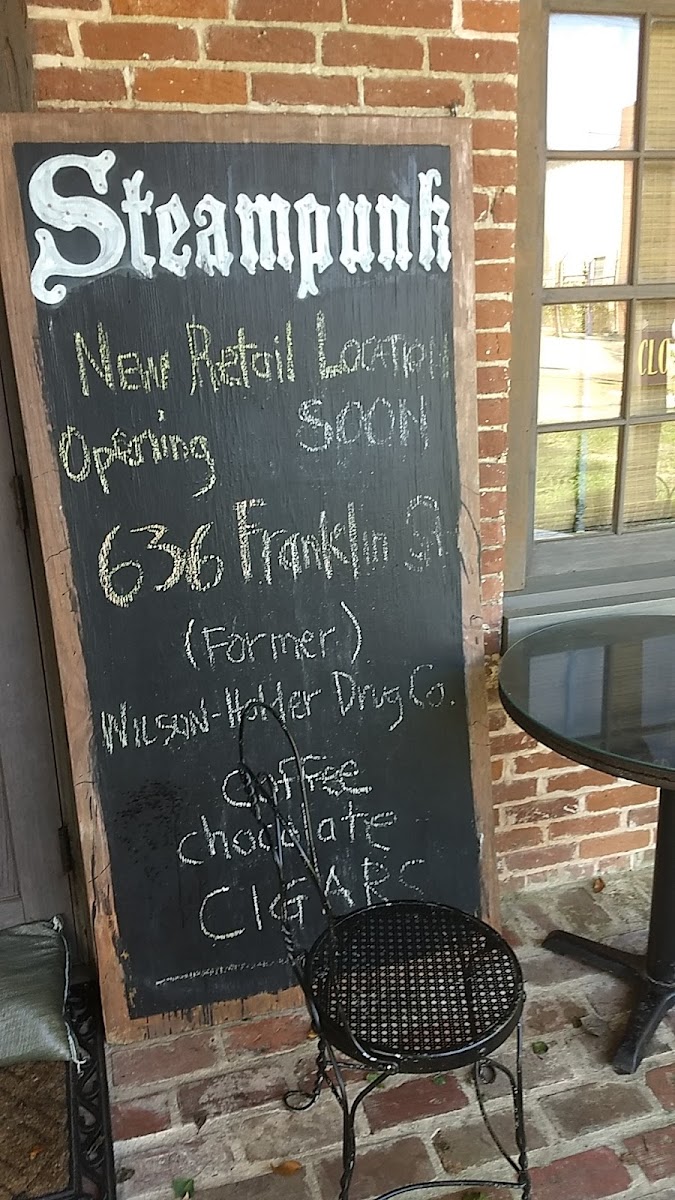 Steampunk
New Retail Location
Opening SOON
636 Franklin St.
(Former)
Wilson-Holder Drug Co.
Coffee
chocolate
CIGARS
CLO